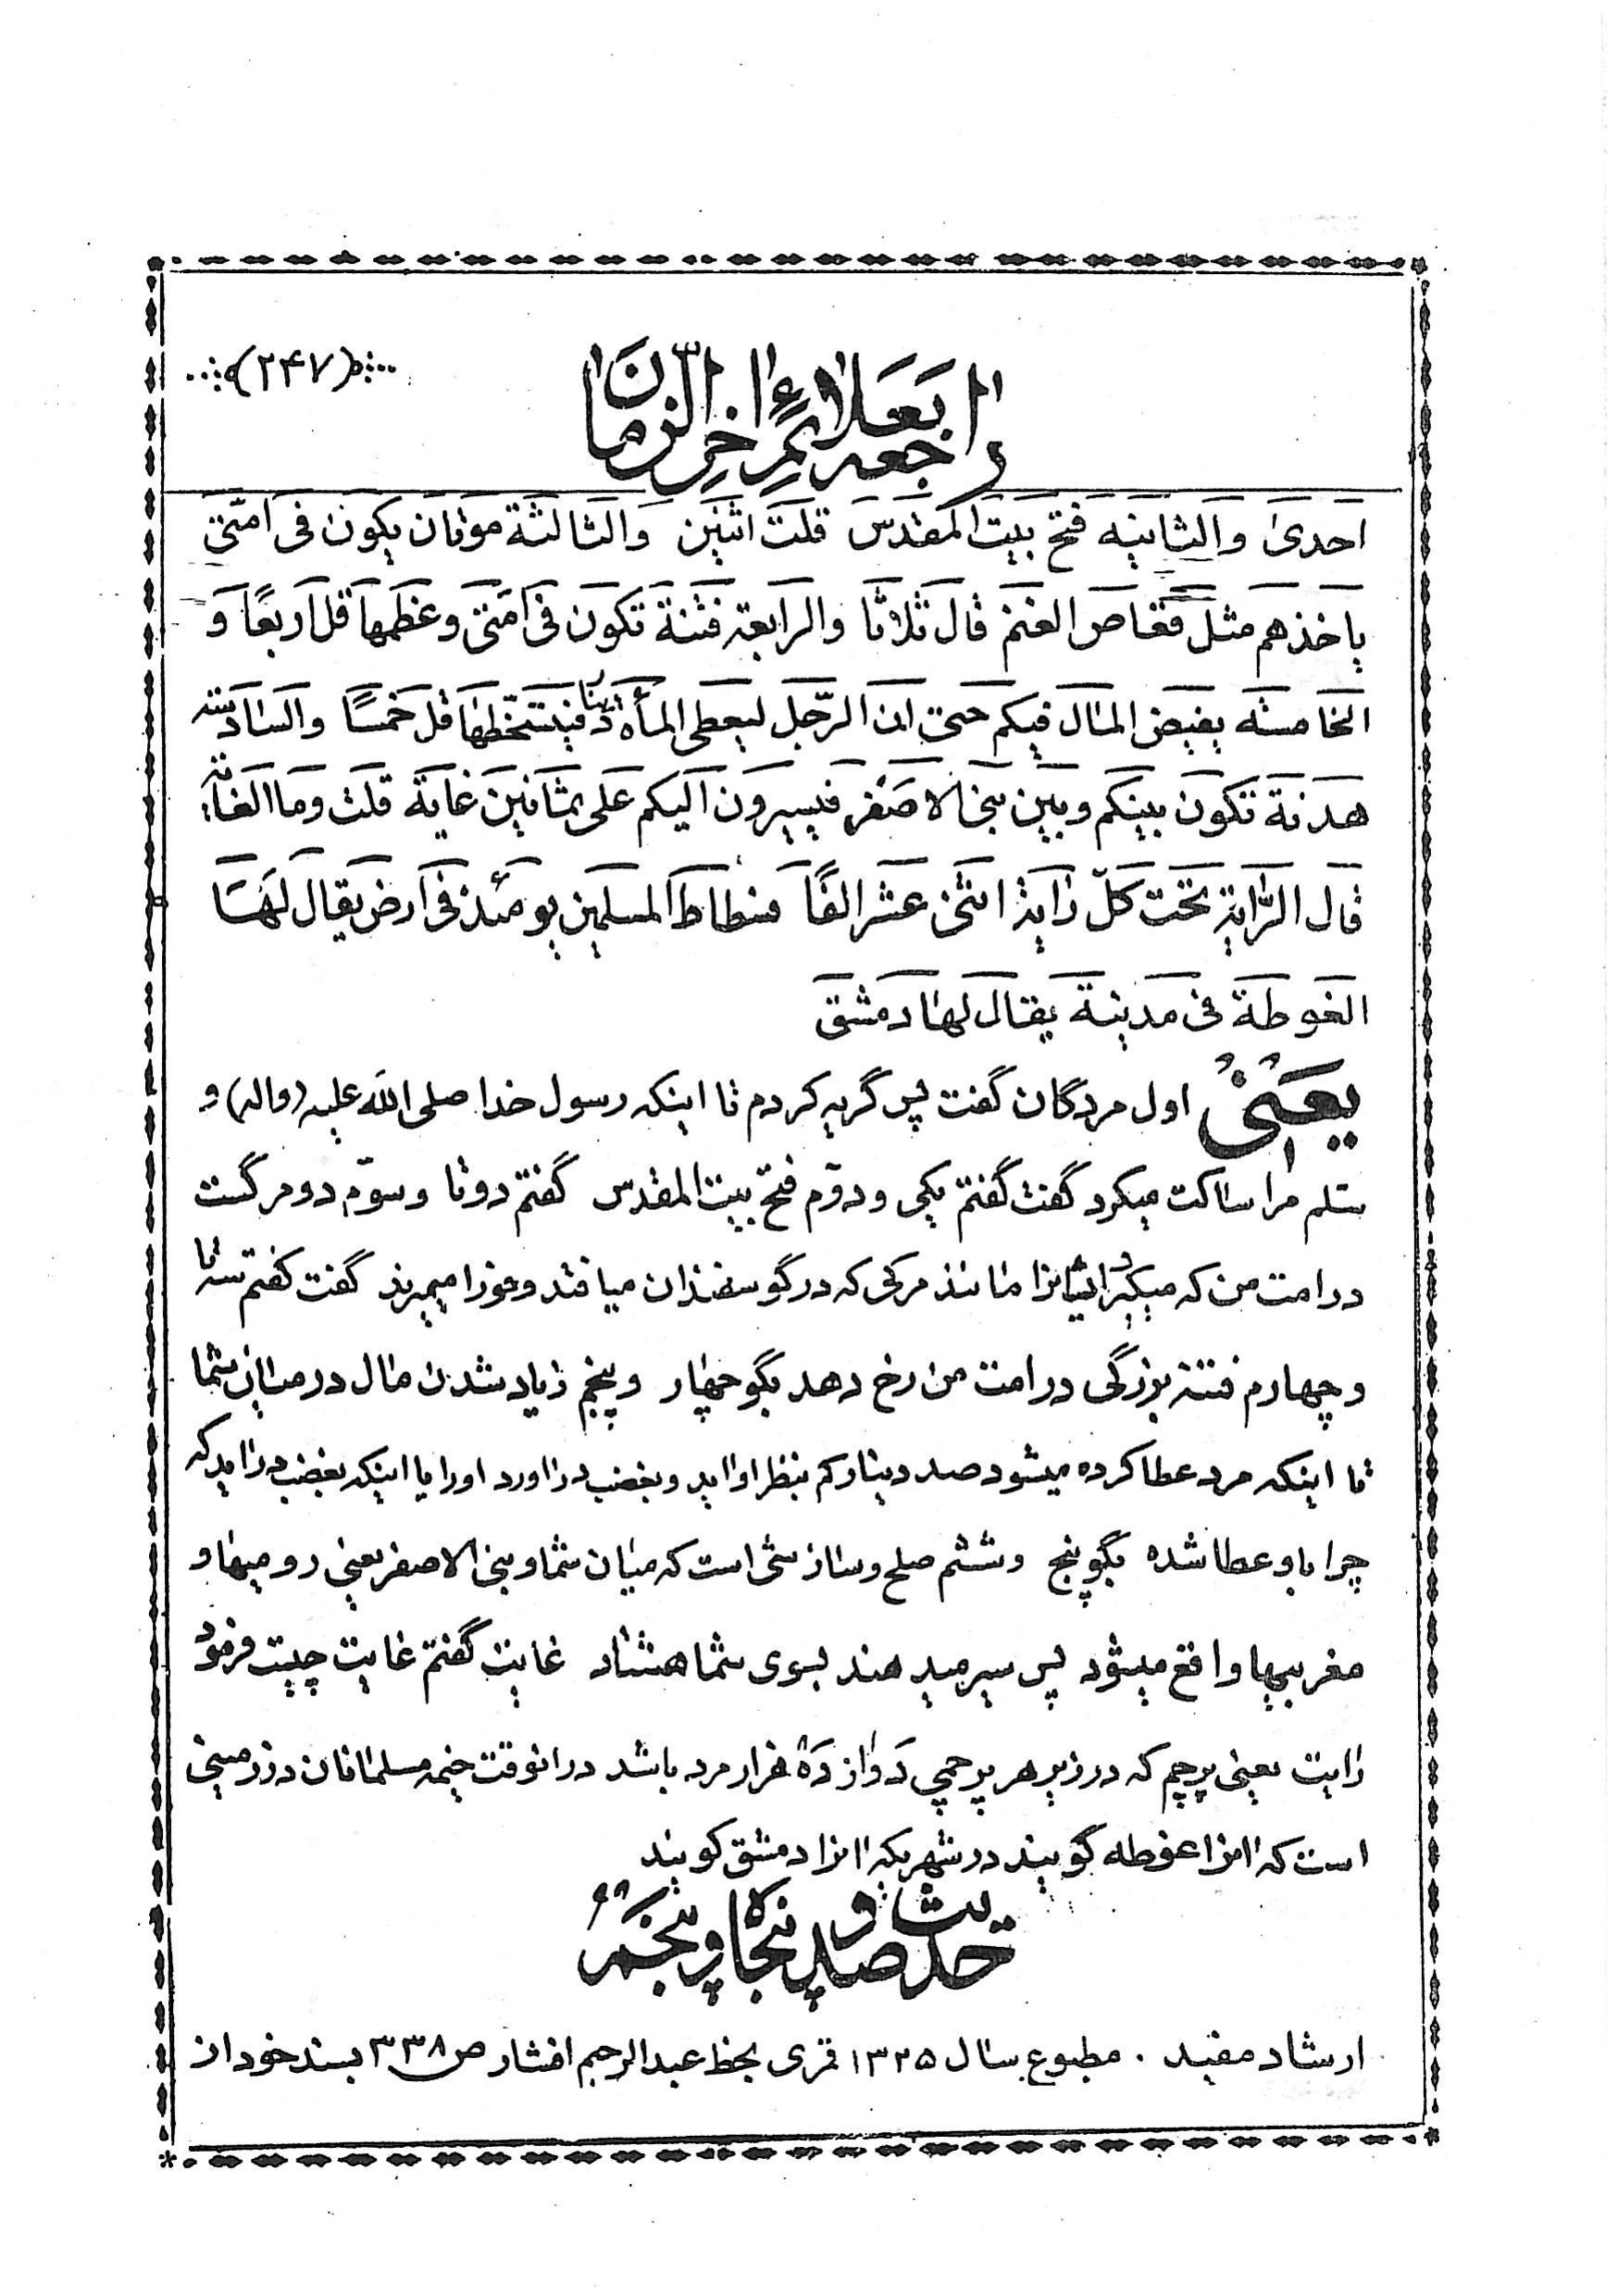 راجع بعلائم اخر الزمان
(۲۴۷)
احدی والثانیه فتح بیت المقدس قلت اثنین والثالثة موتان یکون فی امتی
یاخذهم مثل قعاص الغنم قال ثلاثا والرابعة فتنة تکون فی امتی وعظمها قل اربعا و
الخامسه یفیض المال فیکم حتی ان الرجل لیعطی المأة دینار فیتسخطها قل خمسا والسادسه
هدنة تکون بینکم وبین بنی الاصفر فیسیرون الیکم علی ثمانین غایة قلت وما الغایة
قال الرایة تحت کل رایة اثنی عشر الفا فسطاط المسلمین یومئذ فی ارض یقال لها
الغوطة فی مدینة یقال لها دمشق
یعنی اول مردگان گفت پس گریه کردم تا اینکه رسول خدا صلی الله علیه (واله) و
سلم مرا ساکت میکرد گفت گفتم یکی و دوم فتح بیت المقدس گفتم دوتا و سوم دو مرگست
در امت من که میگیرد ایشانرا مانند مرگی که در گوسفندان میافتد و فورا میمیرند گفت گفتم سه تا
و چهارم فتنه بزرگی در امت من رخ دهد بگو چهار و پنجم زیاد شدن مال در میان شما
تا اینکه مرد عطا کرده میشود صد دینار کم بنظر او اید و بغضب دراورد او را یا اینکه بغضب دراید که
چرا باو عطا شده بگو پنج و ششم صلح و سازشی است که میان شما و بنی الاصفر یعنی رومیها و
مغربیها واقع میشود پس سیر میدهند بسوی شما هشتاد غایت گفتم غایت چیست فرمود
رایت یعنی پرچم که در زیر هر پرچمی دوازده هزار مرد باشد در انوقت خیمه مسلمانان در زمینی
است که انرا غوطه گویند در شهریکه انرا دمشق گویند
حدیث صد و پنجاه و پنجم
ارشاد مفید . مطبوع بسال ۱۳۲۵ قمری بخط عبدالرحیم افشار ص ۳۳۸ بسند خود از